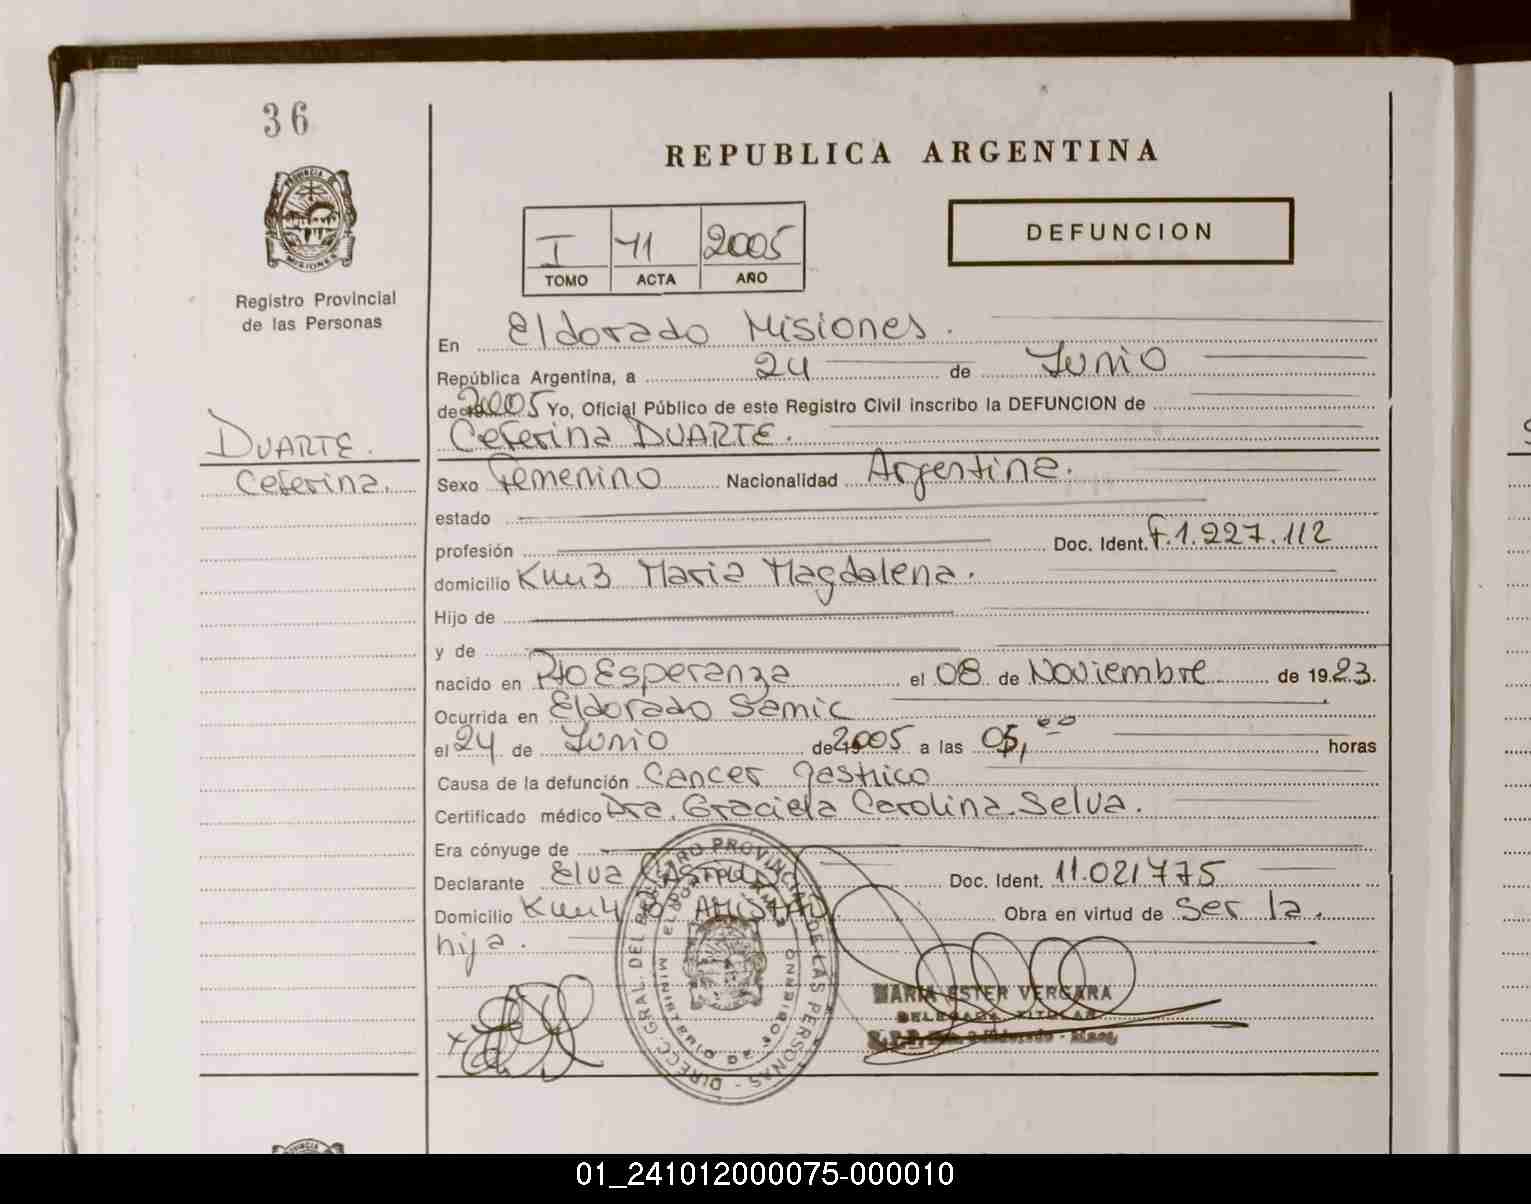 36
REPUBLICA ARGENTINA
PROVINCIA DE
MISIONES
Registro Provincial
de las Personas
I 71 2005
TOMO ACTA AÑO
DEFUNCION
En Eldorado Misiones.
República Argentina, a 24 de Junio
de 2005 Yo, Oficial Público de este Registro Civil inscribo la DEFUNCION de
DUARTE.
Ceferina DUARTE.
Ceferina.
Sexo Femenino Nacionalidad Argentina.
estado
profesión Doc. Ident. F.1.227.112
domicilio Km 3 Maria Magdalena.
Hijo de
y de
nacido en Pto Esperanza el 08 de Noviembre de 1923.
Ocurrida en Eldorado Samic
el 24 de Junio de 2005 a las 05,00 horas
Causa de la defunción Cancer gastrico
Certificado médico Dra. Graciela Carolina Selva.
Era cónyuge de
Declarante Elva Doc. Ident. 11.021775
Domicilio Km 4 Bº AMISTAD Obra en virtud de ser la
hija.
DIRECC. GRAL. DEL REGISTRO PROVINCIAL DE LAS PERSONAS
MINISTERIO DE GOBIERNO
MARIA ESTER VERGARA
DELEGADA TITULAR
01_241012000075-000010